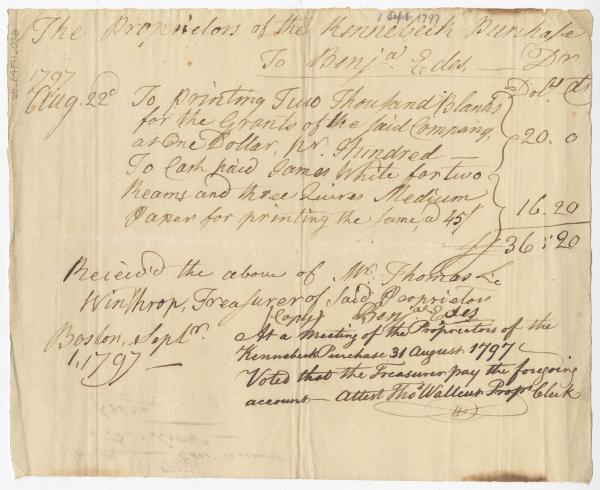 1 Sept. 1797
The Proprietors of the Kennebeck Purchase
To Benja. Edes — Dr
1797
Dolls. Cts
Aug. 22d To printing Two Thousand Blanks
for the Grants of the said Company,
at One Dollar, pr. Hundred 20. 0
To Cash paid James White for two
Reams and three Quires Medium
Paper for printing the same, a 45/ 16.20
36:20
Reciev'd the above of Mr. Thomas L.
Winthrop, Treasurer of said Proprietors
(Copy) Benja. Edes
Boston, Septr.
1, 1797 —
At a meeting of the Proprs. of the
Kennebeck Purchase 31 August 1797
Voted that the Treasurer pay the foregoing
account — Attest Thos Wallcut Proprs. Clerk